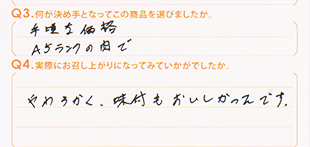 Q3.何が決め手となってこの商品を選びましたか。
手頃な価格
A5ランクの肉で
Q4.実際にお召し上がりになってみていかがでしたか。
やわらかく、味付もおいしかったです。